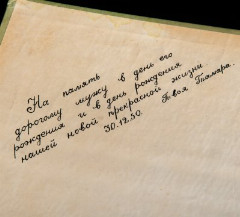 На память
дорогому мужу в день его
рождения и в день рождения
нашей новой прекрасной жизни
30.12.50. Твоя Тамара.